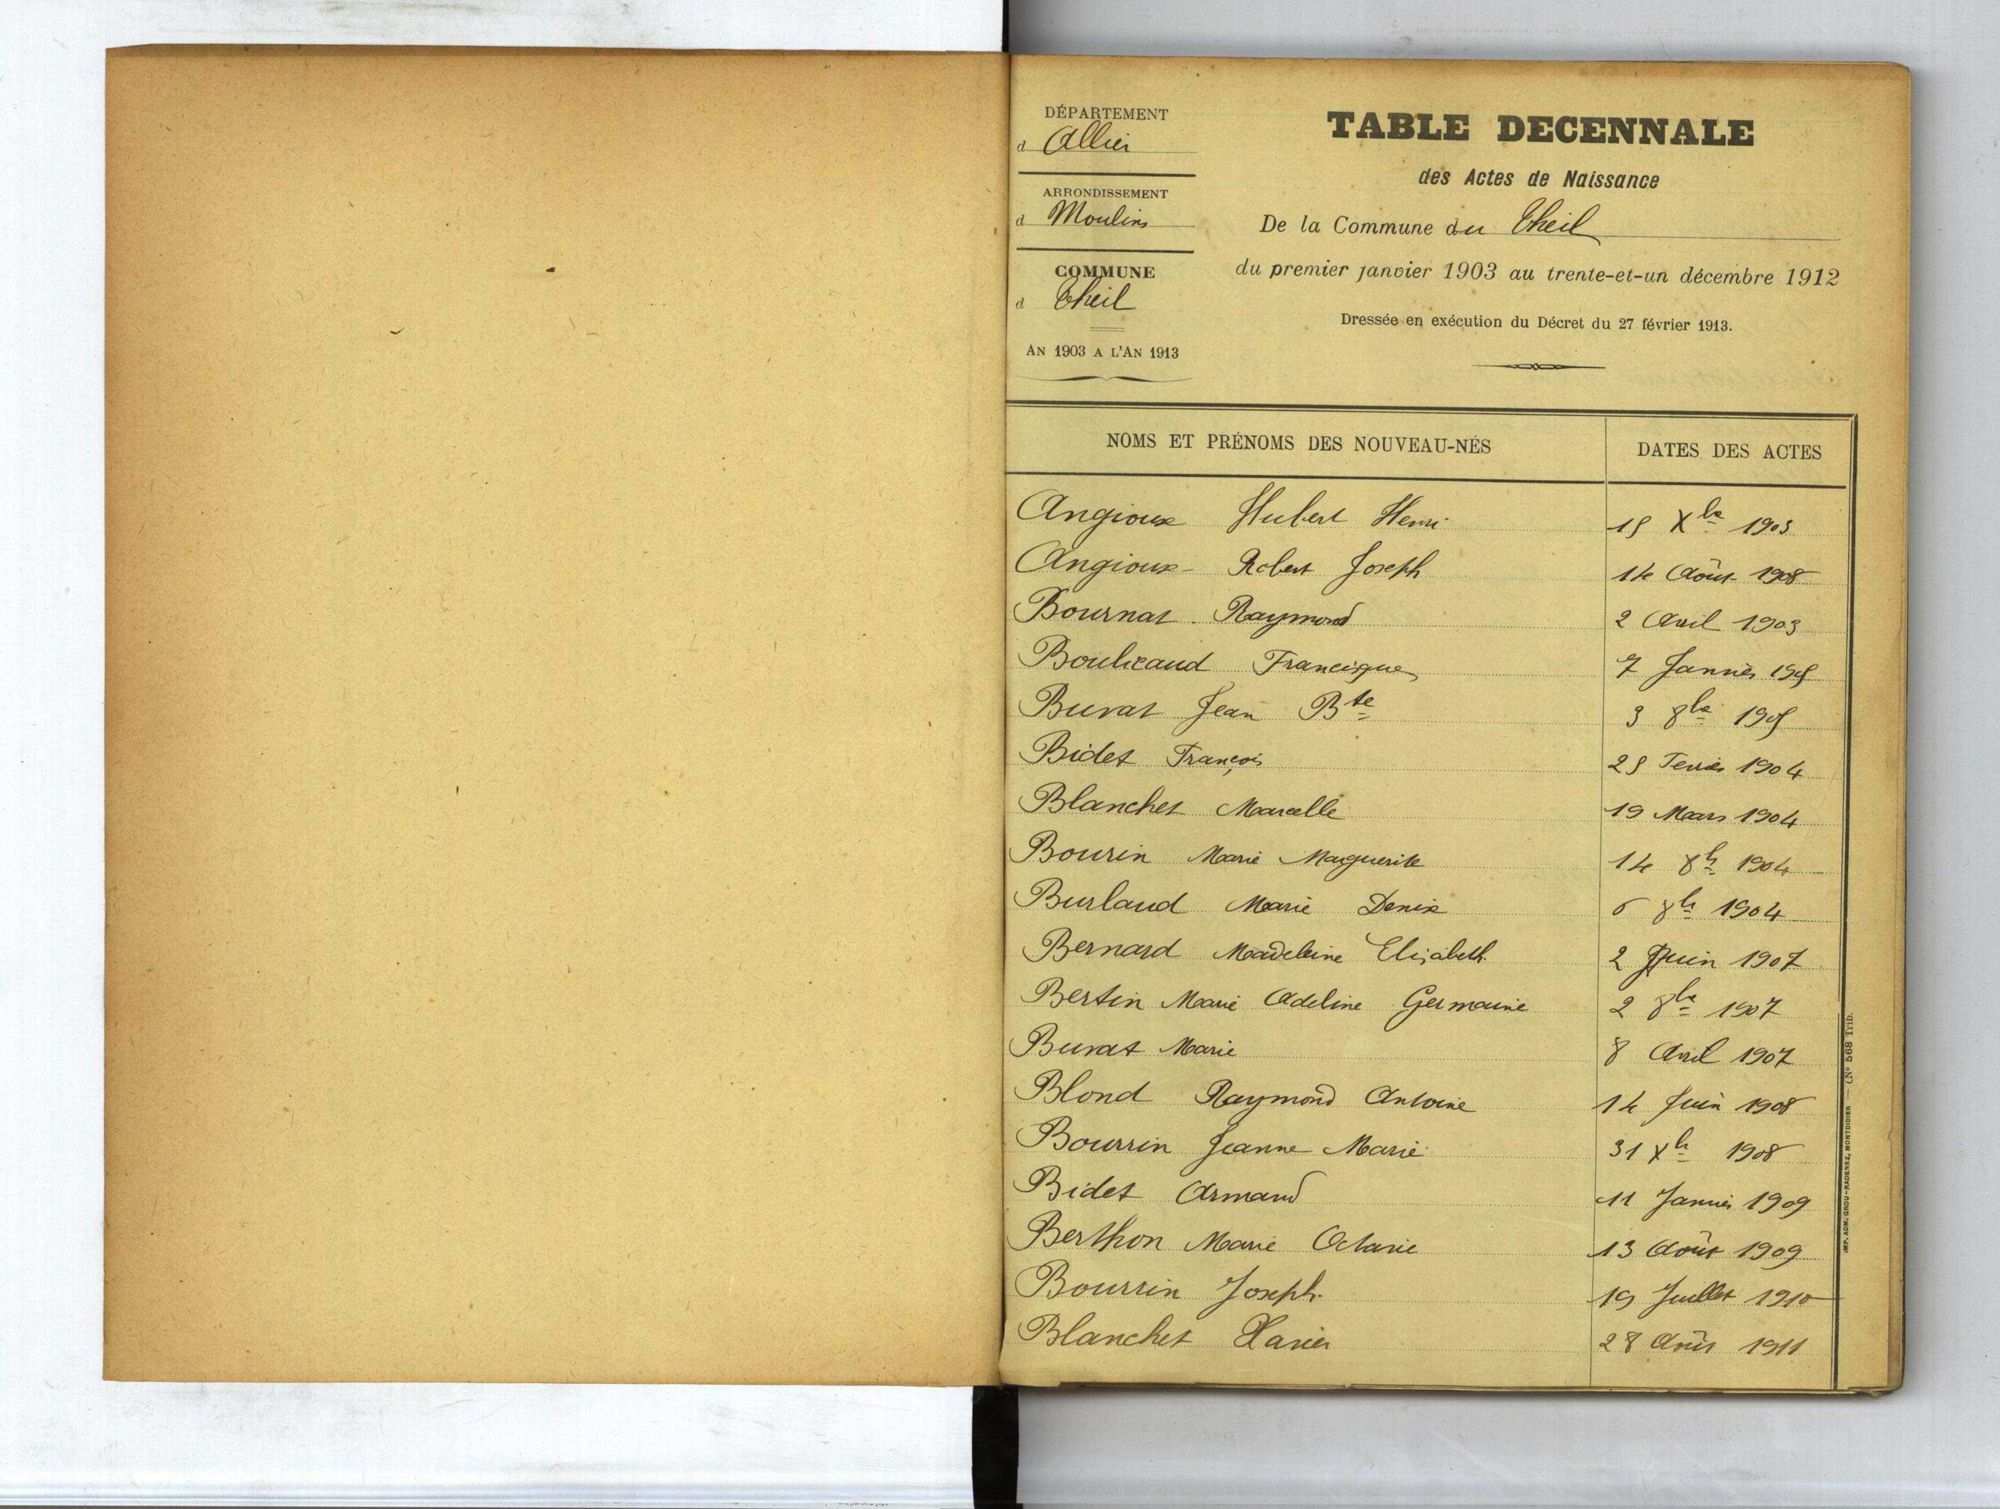 DÉPARTEMENT
d Allier
ARRONDISSEMENT
d Moulins
COMMUNE
d Theil
AN 1903 A L'AN 1913
TABLE DECENNALE
des Actes de Naissance
De la Commune du Theil
du premier janvier 1903 au trente-et-un décembre 1912
Dressée en exécution du Décret du 27 février 1913.
NOMS ET PRÉNOMS DES NOUVEAU-NÉS DATES DES ACTES
Angioux Hubert Henri 15 Xbre 1903
Angioux Robert Joseph 14 Août 1908
Bournat Raymond 2 Avril 1903
Francisque 7 Janvier 1905
Buvat Jean Bte 3 8bre 1905
Bidet François 25 Fevrier 1904
Blanchet Marcelle 19 Mars 1904
Bourin Marie Marguerite 14 8bre 1904
Burlaud Marie Denise 6 8bre 1904
Bernard Madeleine Elisabeth 2 Juin 1907
Bertin Marie Adeline Germaine 2 8bre 1907
Buvat Marie 8 Avril 1907
Blond Raymond Antoine 14 Juin 1908
Bourrin Jeanne Marie 31 Xbre 1908
Bidet Armand 11 Janvier 1909
Berthon Marie Octavie 13 Août 1909
Bourrin Joseph 19 Juillet 1910
Blanchet Xavier 28 Août 1911
IMP. ADM. GROU-RADENEZ, MONTDIDIER — (N° 568 Trib.